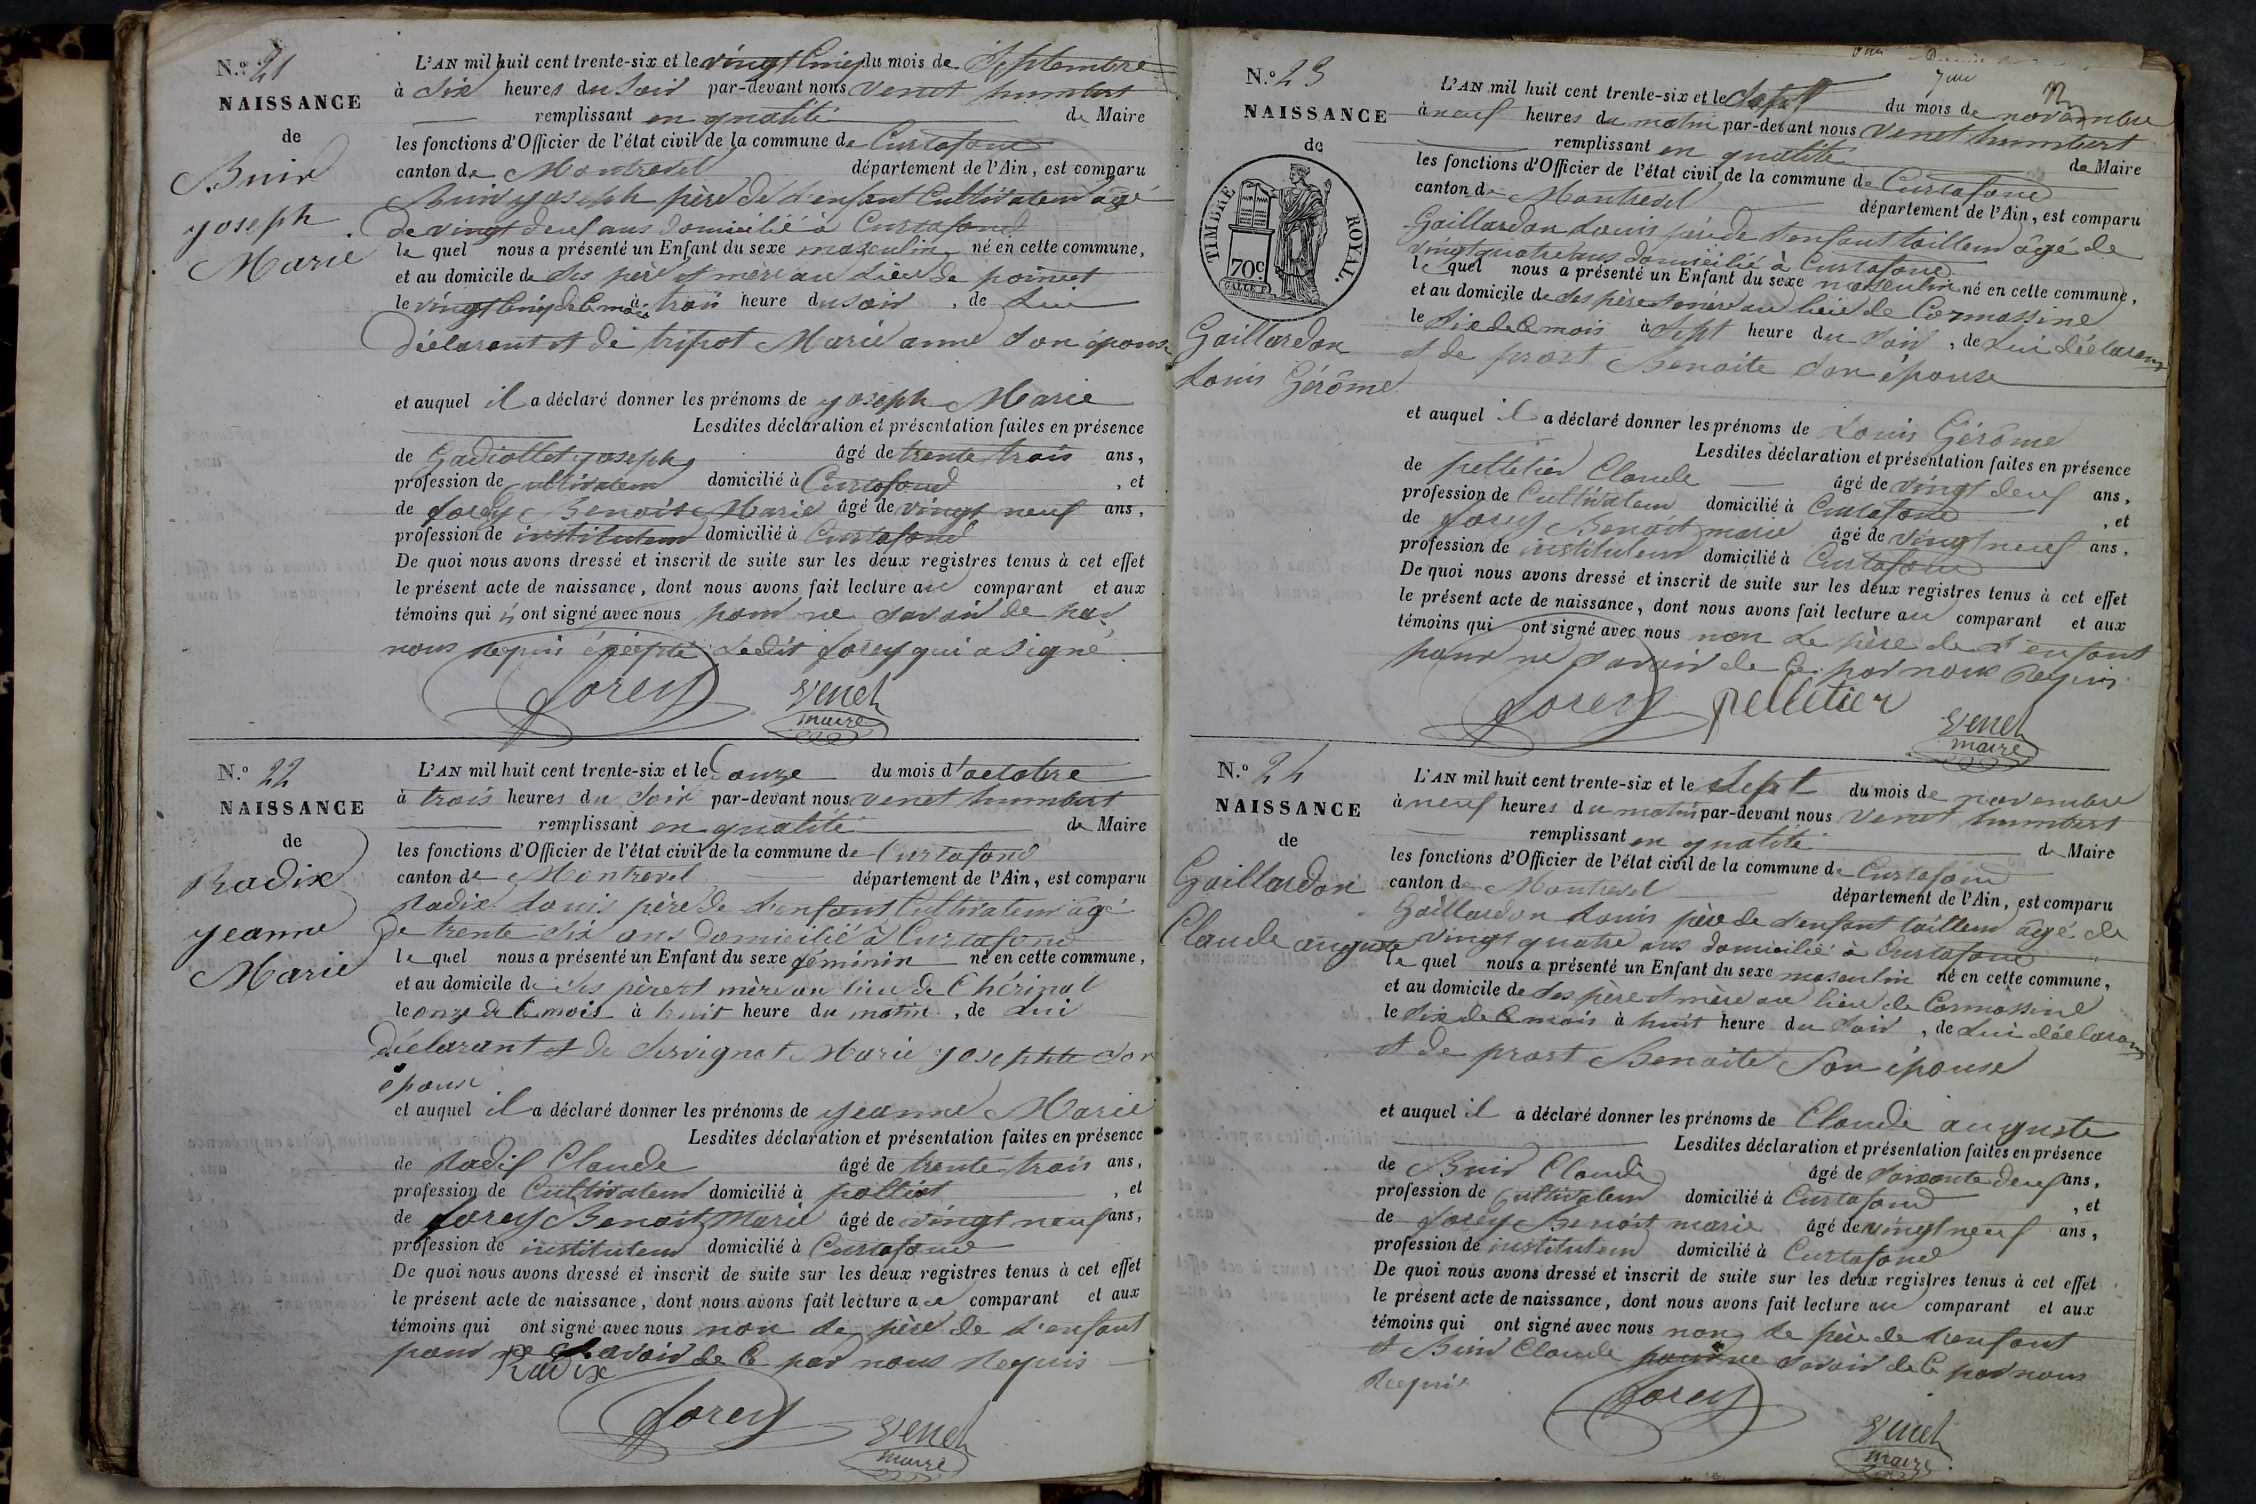 N.º 21
NAISSANCE
de
Buir
yoseph
Marie
L'AN mil huit cent trente-six et le vingt Cinq du mois de Septembre
à Six heures du Soir par-devant nous Venet humbert
remplissant en qualité de Maire
les fonctions d'Officier de l'état civil de la commune de Curtafond
canton de Montrevel département de l'Ain, est comparu
Buir yoseph père de L'enfant Cultivateur âgé
de vingt deux ans domicilié à Curtafond
le quel nous a présenté un Enfant du sexe masculin né en cette commune,
et au domicile de Ses père et mère au Lieu de poinet
le vingt Cinq de Ce mois à trois heure du Soir, de Lui
déclarant et de tripot Marie anne Son épouse
et auquel il a déclaré donner les prénoms de yoseph Marie
Lesdites déclaration et présentation faites en présence
de Gadiollet yoseph âgé de trente trois ans,
profession de Cultivateur domicilié à Curtafond, et
de Sorey Benoit Marie âgé de vingt neuf ans,
profession de instituteur domicilié à Curtafond
De quoi nous avons dressé et inscrit de suite sur les deux registres tenus à cet effet
le présent acte de naissance, dont nous avons fait lecture au comparant et aux
témoins qui n'ont signé avec nous pour ne Savoir de par
nous Requis éxcepté Ledit Sorey qui a Signé
Sorey Venet
maire
N.º 22
NAISSANCE
de
Radix
yeanne
Marie
L'AN mil huit cent trente-six et le onze du mois d'octobre
à trois heures du Soir par-devant nous Venet humbert
remplissant en qualité de Maire
les fonctions d'Officier de l'état civil de la commune de Curtafond
canton de Montrevel département de l'Ain, est comparu
Radix Louis père de L'enfant Cultivateur âgé
de trente Six ans domicilié à Curtafond
le quel nous a présenté un Enfant du sexe féminin né en cette commune,
et au domicile de Ses père et mère au lieu de Chérinal
le onze de Ce mois à huit heure du matin, de Lui
déclarant et de Servignat Marie yosephte Son
épouse
et auquel il a déclaré donner les prénoms de yeanne Marie
Lesdites déclaration et présentation faites en présence
de Radix Claude âgé de trente trois ans,
profession de Cultivateur domicilié à polliat, et
de Sorey Benoit Marie âgé de vingt neuf ans,
profession de instituteur domicilié à Curtafond
De quoi nous avons dressé et inscrit de suite sur les deux registres tenus à cet effet
le présent acte de naissance, dont nous avons fait lecture au comparant et aux
témoins qui ont signé avec nous non Le père de L'enfant
pour ne Savoir de Ce par nous Requis
Radix
Sorey Venet
maire
N.º 23
NAISSANCE
de
TIMBRE ROYAL.
70c
Gaillardon
Louis Gérôme
L'AN mil huit cent trente-six et le Sept du mois de novembre
à neuf heures du matin par-devant nous Venet humbert
remplissant en qualité de Maire
les fonctions d'Officier de l'état civil de la commune de Curtafond
canton de Montrevel département de l'Ain, est comparu
Gaillardon Louis père de L'enfant tailleur âgé de
vingt quatre ans domicilié à Curtafond
le quel nous a présenté un Enfant du sexe masculin né en cette commune,
et au domicile de Ses père et mère au lieu de Cormassine
le Six de Ce mois à Sept heure du Soir, de Lui déclarant
et de prost Benoite Son épouse
et auquel il a déclaré donner les prénoms de Louis Gérôme
Lesdites déclaration et présentation faites en présence
de pelletier Claude âgé de vingt deux ans,
profession de Cultivateur domicilié à Curtafond, et
de Sorey Benoit marie âgé de vingt neuf ans,
profession de instituteur domicilié à Curtafond
De quoi nous avons dressé et inscrit de suite sur les deux registres tenus à cet effet
le présent acte de naissance, dont nous avons fait lecture au comparant et aux
témoins qui ont signé avec nous non Le père de L'enfant
pour ne Savoir de Ce par nous Requis
Sorey pelletier Venet
maire
N.º 24
NAISSANCE
de
Gaillardon
Claude auguste
L'AN mil huit cent trente-six et le Sept du mois de novembre
à neuf heures du matin par-devant nous Venet humbert
remplissant en qualité de Maire
les fonctions d'Officier de l'état civil de la commune de Curtafond
canton de Montrevel département de l'Ain, est comparu
Gaillardon Louis père de L'enfant tailleur âgé de
vingt quatre ans domicilié à Curtafond
le quel nous a présenté un Enfant du sexe masculin né en cette commune,
et au domicile de Ses père et mère au lieu de Cormassine
le Six de Ce mois à huit heure du Soir, de Lui déclarant
et de prost Benoite Son épouse
et auquel il a déclaré donner les prénoms de Claude auguste
Lesdites déclaration et présentation faites en présence
de Buir Claude âgé de Soixante deux ans,
profession de Cultivateur domicilié à Curtafond, et
de Sorey Benoit marie âgé de vingt neuf ans,
profession de instituteur domicilié à Curtafond
De quoi nous avons dressé et inscrit de suite sur les deux registres tenus à cet effet
le présent acte de naissance, dont nous avons fait lecture au comparant et aux
témoins qui ont signé avec nous non Le père de L'enfant
et Buir Claude pour ne Savoir de Ce par nous
Requis
Sorey Venet
maire